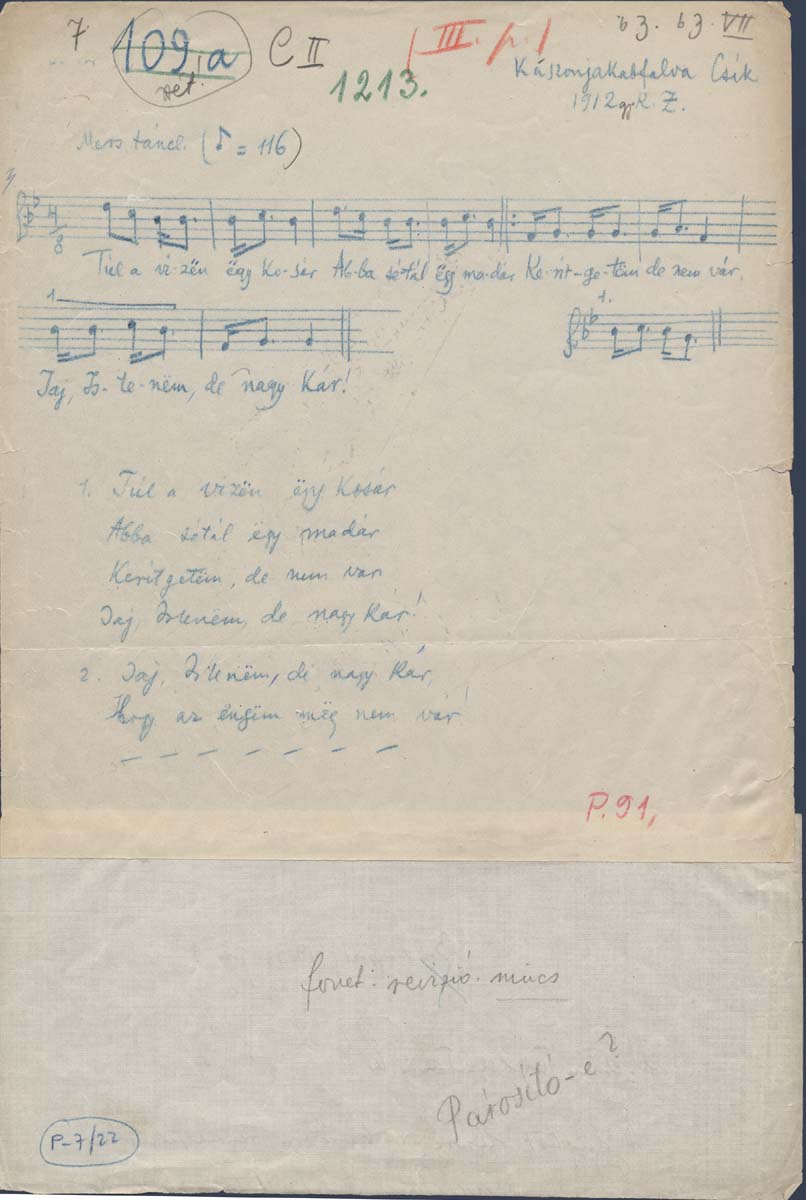 7 109,a C II III. 63. 63. VII
1213.
Kászonjakabfalva Csík
1912 K. Z.
táncl. (♪ = 116)
4/8
Túl a vi-zën ëgy Ko-sár Ab-ba sé-tál ëgy ma-dár Ke-rít-ge-tëm de nem vár.
1. 1.
Jaj, Is-te-nëm, de nagy Kár!
1. Túl a vizën ëgy Kosár
Abba sétál ëgy madár
Kerítgetëm, de nem vár
Jaj, Istenëm, de nagy Kár!
2. Jaj, Istenëm, de nagy Kár,
Hogy az éngëm még nem vár!
– – – – – – –
P. 91,
fonet: revizió nincs
Párosító-e?
P-7/22